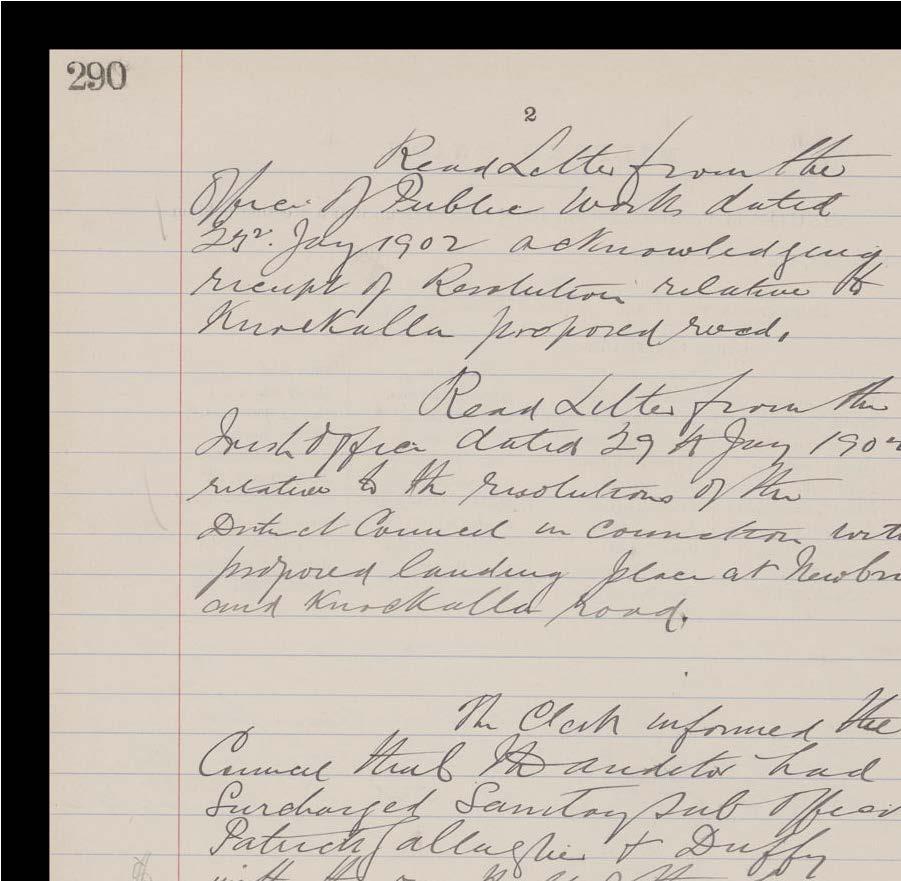 290
2
Read Letter from the
Office of Public Works dated
Jay 1902 acknowledging
receipt of Resolution relative to
Knockalla proposed road.
Read Letter from the
Irish Office dated 29th Jay 190
relative to the resolutions of the
District Council in connection with
proposed landing place at
and Knockalla road.
The Clerk informed the
Council that the auditor had
Surcharged Sanitary Sub Officer
Patrick Gallagher & Duffy